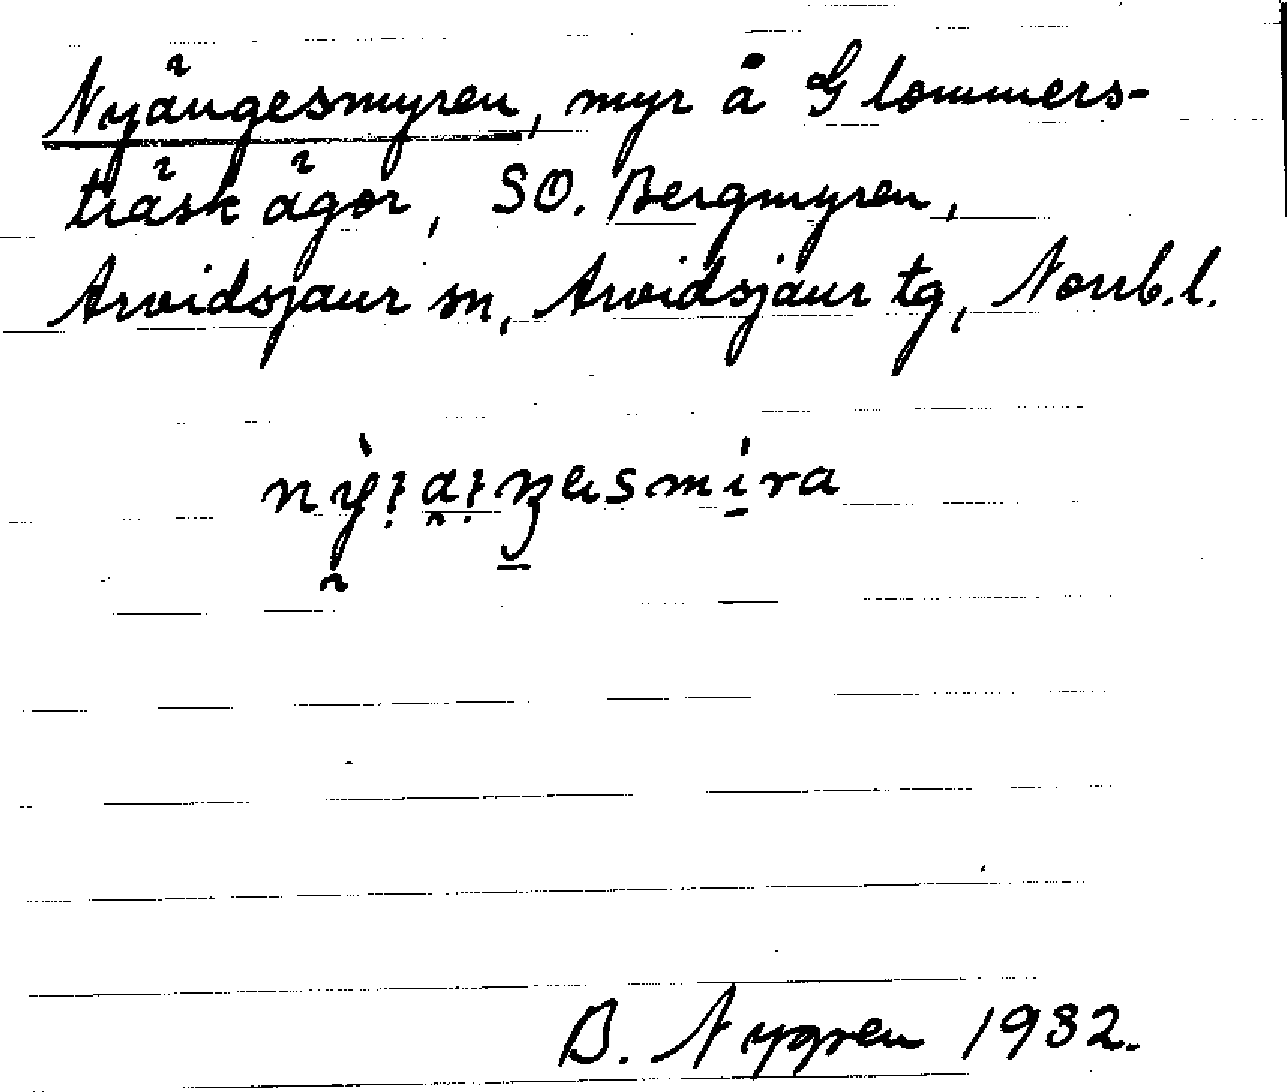 Nyängesmyren, myr å Glommers-
träsk ägor, SO. Bergmyren,
Arvidsjaur sn, Arvidsjaur tg, Norrb.l.
B. Nygren 1932.